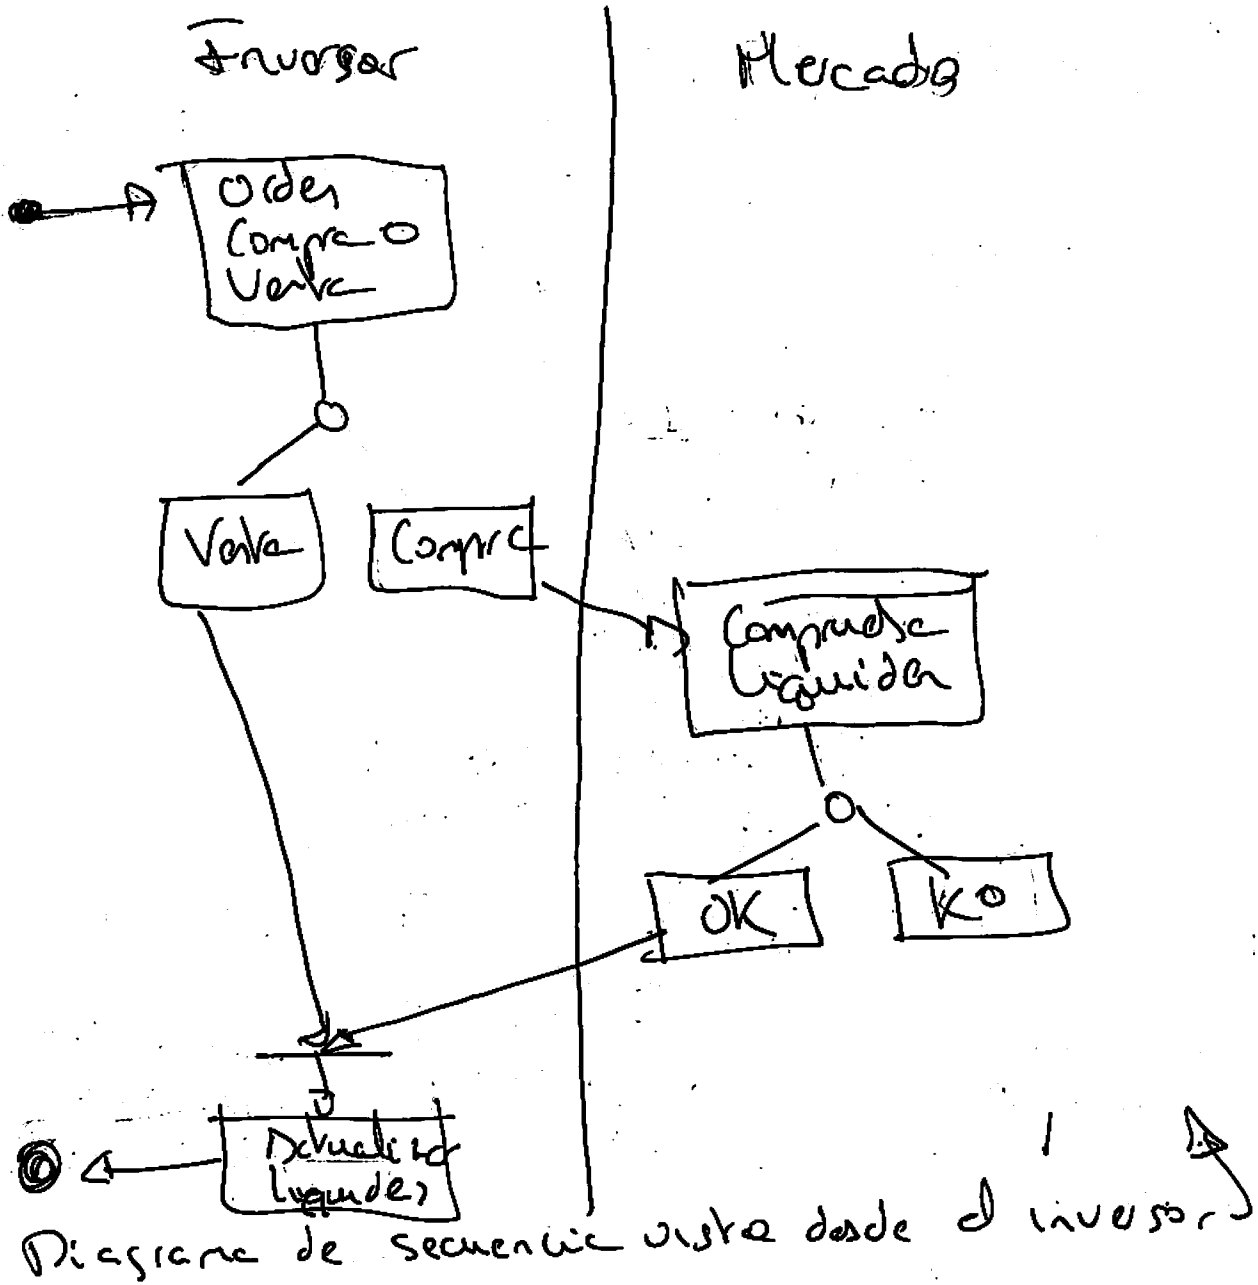 Inversor
Mercado
Orden
Compra o
Venta
Venta
Compra
Comprueba
Liquidez
OK
KO
Actualizar
liquidez
Diagrama de secuencia vista desde el inversor